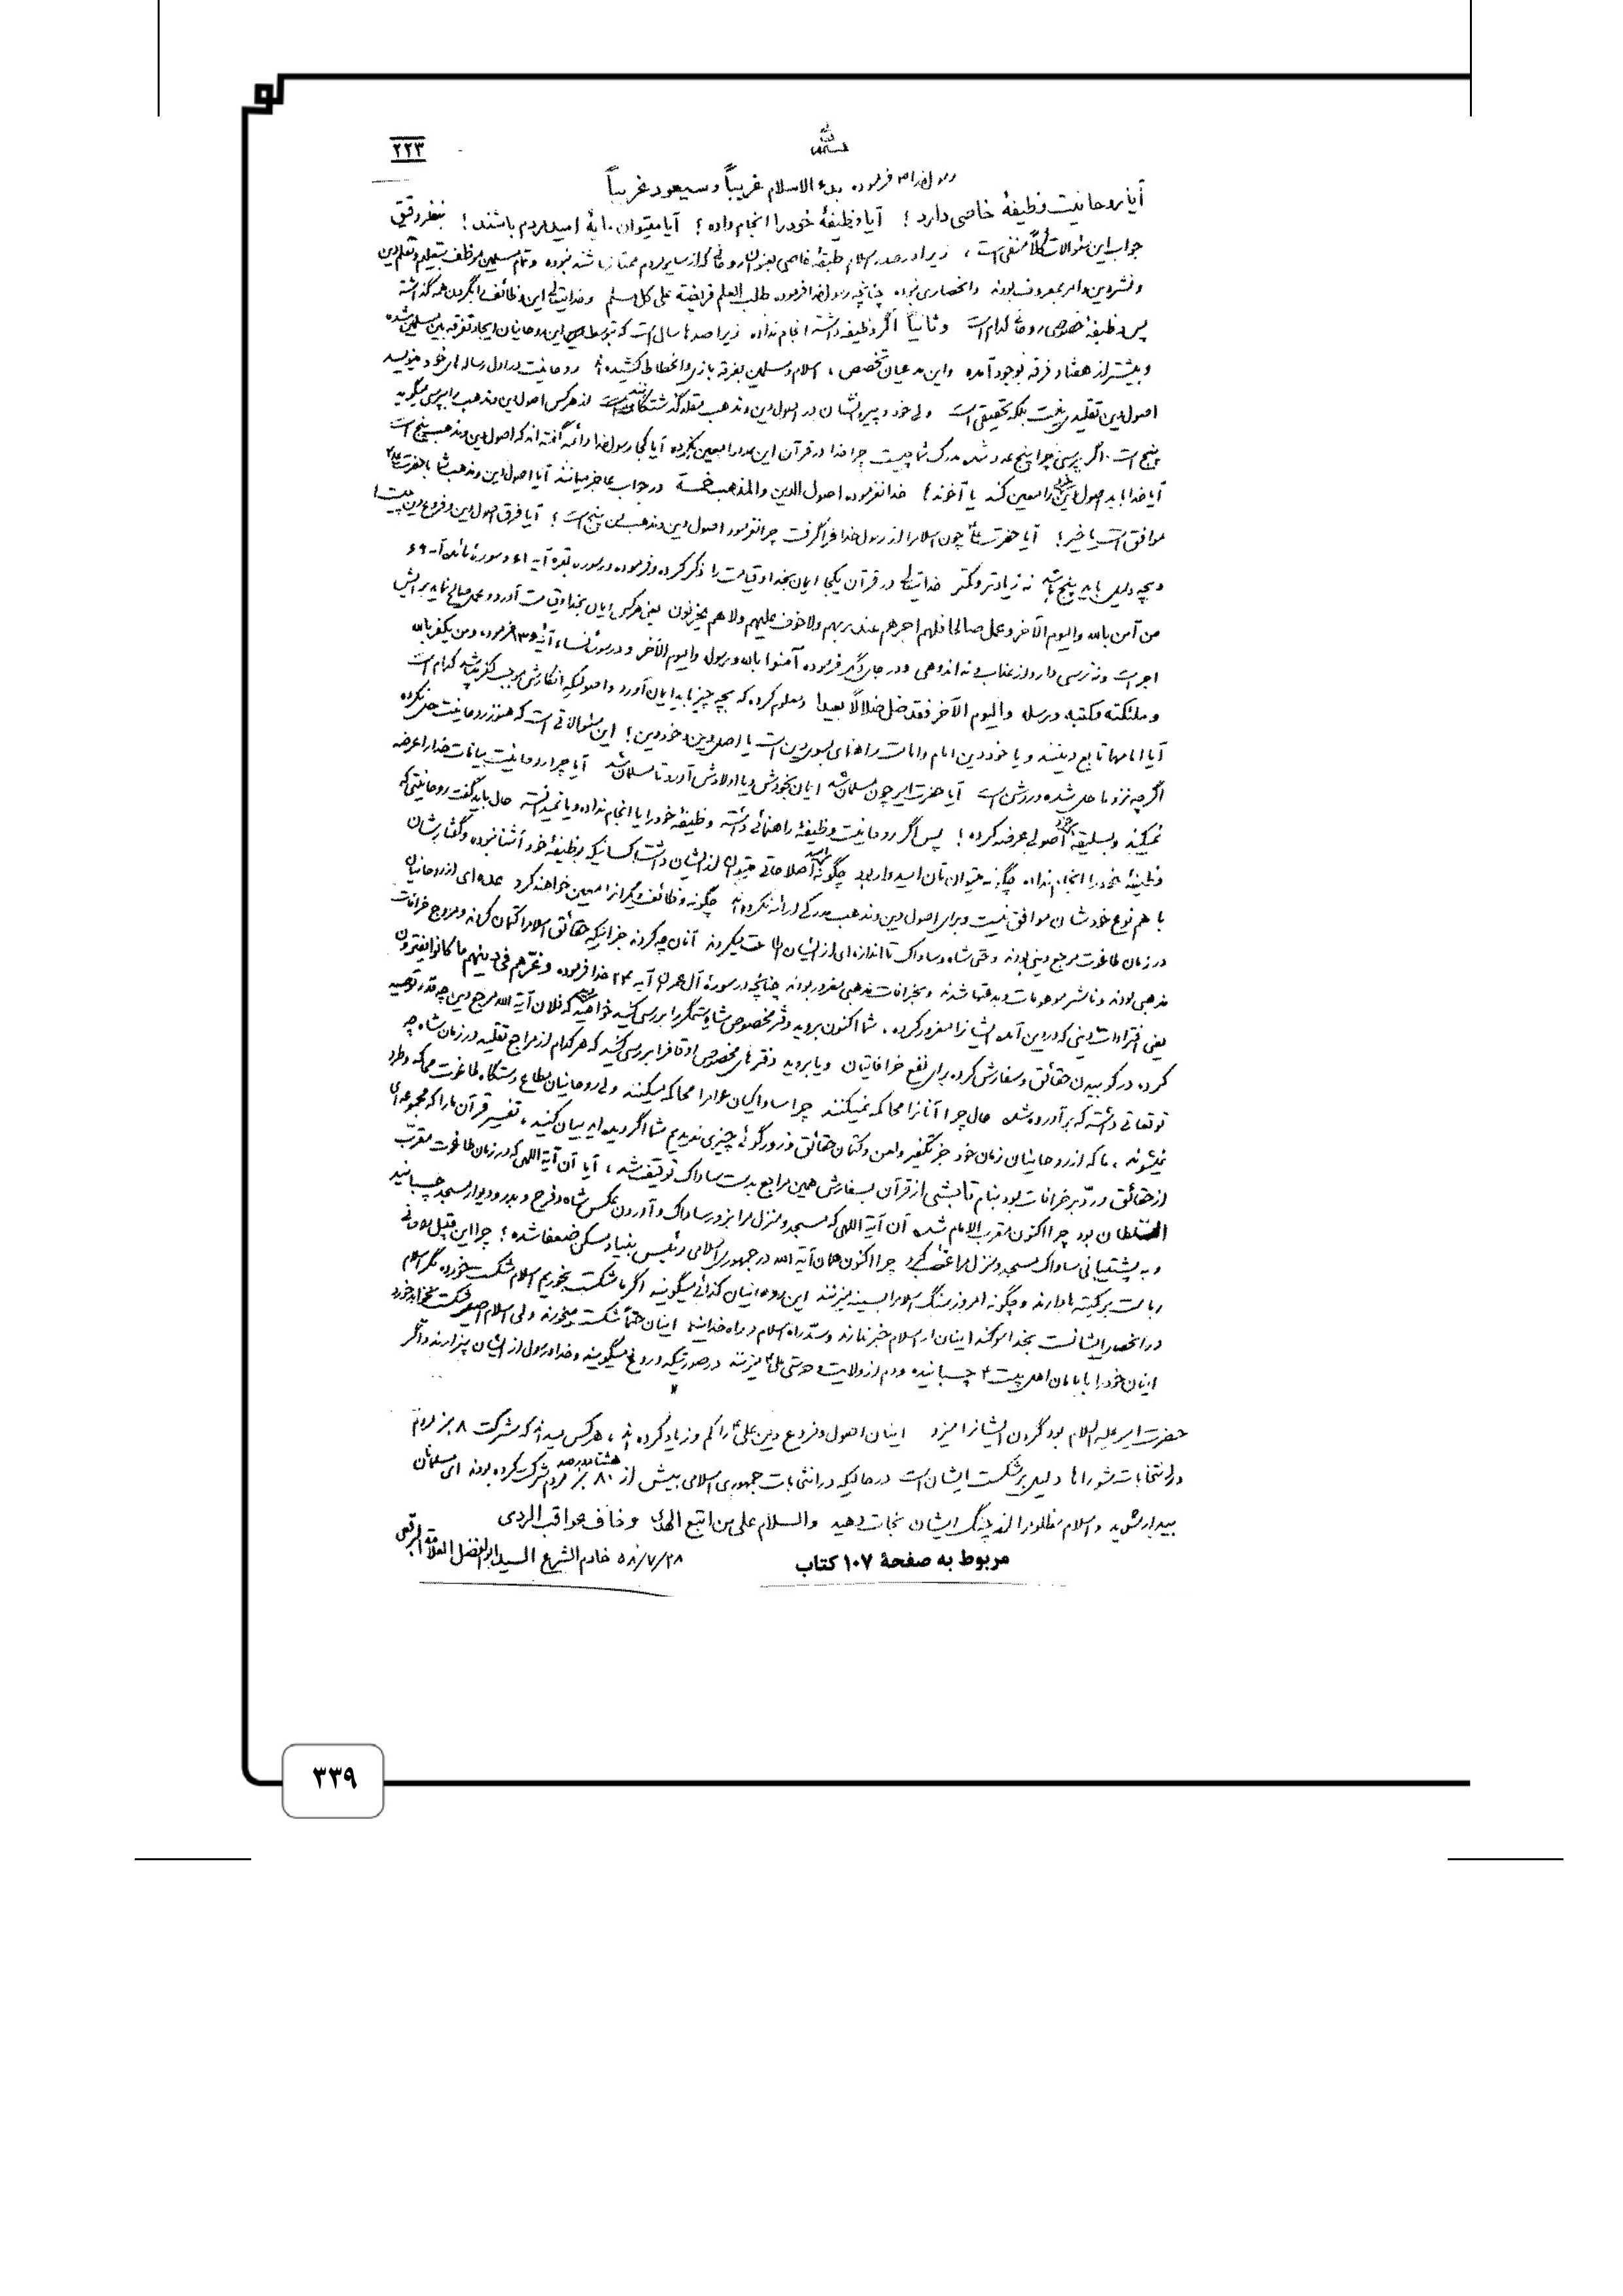 ۲۲۳
بسمه تعالی
رسول خدا ص فرموده بدء الاسلام غریباً و سیعود غریباً
آیا روحانیت وظیفهٔ خاصی دارد؟ آیا وظیفهٔ خود را انجام داده؟ آیا میتوان مایهٔ امید مردم باشند؟ بنظر دقیق
جواب این سئوالات کلاً منفی است، زیرا در صدر اسلام طبقهٔ خاصی بعنوان روحانی که از سایر مردم ممتاز باشد نبوده و تمام مسلمین موظف بتعلیم و تعلم دین
و نشر دین و امر بمعروف بودند و انحصاری نبوده چنانچه رسول خدا فرموده طلب العلم فریضة علی کل مسلم و خدایتعالی این وظائف را بگردن همه گذاشته
پس وظیفهٔ خصوصی روحانی کدام است و ثانیاً اگر وظیفه داشته انجام نداده زیرا صدها سال است که توسط این روحانیان ایجاد تفرقه بین مسلمین شده
و بیشتر از هفتاد فرقه بوجود آمده و این مدعیان تخصص، اسلام و مسلمین بفرقه بازی و انحطاط کشیده‌اند روحانیت در اول رساله‌های خود مینویسد
اصول دین تقلیدی نیست بلکه تحقیقی است ولی خود و پیروانشان در اصول دین و مذهب مقلد گذشتگانند از هر کس اصول دین و مذهب را بپرسی میگوید
پنج است. اگر بپرسی چرا پنج عدد شده مدرک شما چیست چرا خدا در قرآن این عدد را معین نکرده آیا کجا رسول خدا و ائمه گفته‌اند که اصول دین و مذهب پنج است
آیا خدا باید اصول دین خود را معین کند یا آخوند؟ خدا نفرموده اصول الدین و المذهب خمسة در جواب عاجز میمانند آیا اصول دین و مذهب شما با حضرت علی ع
موافق است یا خیر؟ آیا حضرت علی ع چون اسلام را از رسول خدا فرا گرفت چرا نفرمود اصول دین و مذهب من پنج است؟ آیا فرق اصول دین و فروع دین چیست؟
و بچه دلیل باید پنج باشد نه زیادتر و کمتر خدایتعالی در قرآن یکجا ایمان بخدا و قیامت را ذکر کرده و فرموده در سوره بقره آیه ۶۱ و سورهٔ مائده آیه ۶۹
من آمن بالله و الیوم الآخر و عمل صالحا فلهم اجرهم عند ربهم ولا خوف علیهم ولا هم یحزنون یعنی هر کس ایمان بخدا و قیامت آورد و عمل صالح نماید برایش
اجر است و نه ترسی دارد از عذاب و نه اندوهی و در جای دیگر فرموده آمنوا بالله و رسوله و الیوم الآخر و در سورهٔ نساء آیهٔ ۱۳۶ فرموده و من یکفر بالله
و ملئکته و کتبه و رسله و الیوم الآخر فقد ضل ضلالاً بعیدا و معلوم کرده که بچه چیز باید ایمان آورد و اصولیکه انکارش موجب کفر باشد کدام است
آیا امامها تابع دینند و یا خود دین امام و امامت راهنمای بسوی دین است یا اصل دین و خود دین؟ این سئوالاتی است که هنوز روحانیت حل نکرده
اگرچه نزد ما حل شده و روشن است آیا حضرت امیر چون مسلمان شد ایمان بخودش و یا اولادش آورد تا مسلمان شد آیا چرا روحانیت بیانات خدا را عرضه
نمیکند و بسلیقهٔ خود اصولی عرضه کرده؟ پس اگر روحانیت وظیفهٔ راهنمائی داشته وظیفهٔ خود را یا انجام نداده و یا نمیدانسته حال باید گفت روحانیتی که
وظیفهٔ خود را انجام نداده چگونه میتوان بآن امیدوار بود چگونه امید اصلاحاتی میتوان از ایشان داشت کسانیکه بوظیفهٔ خود آشنا نبوده و گفتارشان
با هم نوع خودشان موافق نیست و برای اصول دین و مذهب مدرکی ارائه نکرده‌اند چگونه وظائف دیگران را معین خواهند کرد عده‌ای از روحانیان
در زمان طاغوت مرجع دینی بودند و حتی شاه و ساواک تا اندازه‌ای از ایشان اطاعت میکردند آنان چه کردند جز اینکه حقائق اسلام را کتمان کردند و مروج خرافات
مذهبی بودند و ناشر موهومات و بدعتها شدند و بخرافات مذهبی مغرور بودند چنانچه در سورهٔ آل عمران آیه ۲۴ خدا فرموده و غرهم فی دینهم ما کانوا یفترون
یعنی افترائات دینی که در دین آمده ایشانرا مغرور کرده. شما اکنون بروید دفتر مخصوص شاه ستمگر را بررسی کنید خواهید دید که فلان آیة الله مرجع دین چه قدر توصیه
کرده در کوبیدن حقائق و سفارش کرده برای نفع خرافاتیان و یا بروید دفترهای مخصوص اوقاف را بررسی کنید که هر کدام از مراجع تقلید در زمان شاه چه
توقعاتی داشته که برآورده شده حال چرا آنانرا محاکمه نمیکنند چرا ساواکیان عوام را محاکمه میکنند ولی روحانیان مطاع دستگاه طاغوت محاکمه و طرد
نمیشوند، ما که از روحانیان زمان خود جز تکفیر و لعن و کتمان حقائق و زورگوئی چیزی ندیدیم شما اگر دیده‌اید بیان کنید، تفسیر قرآن ما را که مجموعه‌ای
از حقائق و ردّ بر خرافات بود بنام تابشی از قرآن بسفارش همین مراجع بدست ساواک توقیف شد، آیا آن آیة اللهی که در زمان طاغوت مقرّب
السّلطان بود چرا اکنون مقرب الامام شده آن آیة اللهی که مسجد و منزل مرا بزور ساواک و آوردن عکس شاه و فرح و بدر و دیوار مسجد چسبانید
و به پشتیبانی ساواک مسجد و منزل مرا غصب کرد چرا اکنون همان آیة الله در جمهوری اسلامی رئیس بنیاد مسکن ضعفا شده؟ چرا این قبیل روحانی
ریاست بر کمیته‌ها دارند و چگونه امروز سنگ اسلام را بسینه میزنند این روحانیان کذائی میگویند اگر ما شکست بخوریم اسلام شکست خورده مگر اسلام
در انحصار ایشانست بخدا سوگند اینان از اسلام خبر ندارند و سدّ راه اسلام و راه خدایند اینان حتماً شکست میخورند ولی اسلام اصیل شکست نخواهد خورد
اینان خود را بامامان اهل بیت ع چسبانیده و دم از ولایت و دوستی علی ع میزنند در صورتیکه دروغ میگویند و خدا و رسول از ایشان بیزارند و اگر
حضرت امیر علیه السلام بود گردن ایشانرا میزد اینان اصول و فروع دین علی ع را کم و زیاد کرده‌اند، هر کس میداند که شرکت ۸ بز مردم
در انتخابات شوراها دلیل بر شکست ایشان است در حالیکه در انتخابات جمهوری اسلامی بیش از ۸۰ هشتاد درصد مردم شرکت کرده بودند ای مسلمانان
بیدار شوید و اسلام مظلوم را از چنگ ایشان نجات دهید والسلام علی من اتبع الهدی و خاف عواقب الردی
۵۸/۷/۲۸ خادم الشرع السید ابوالفضل العلامة البرقعی
مربوط به صفحهٔ ۱۰۷ کتاب
۳۳۹